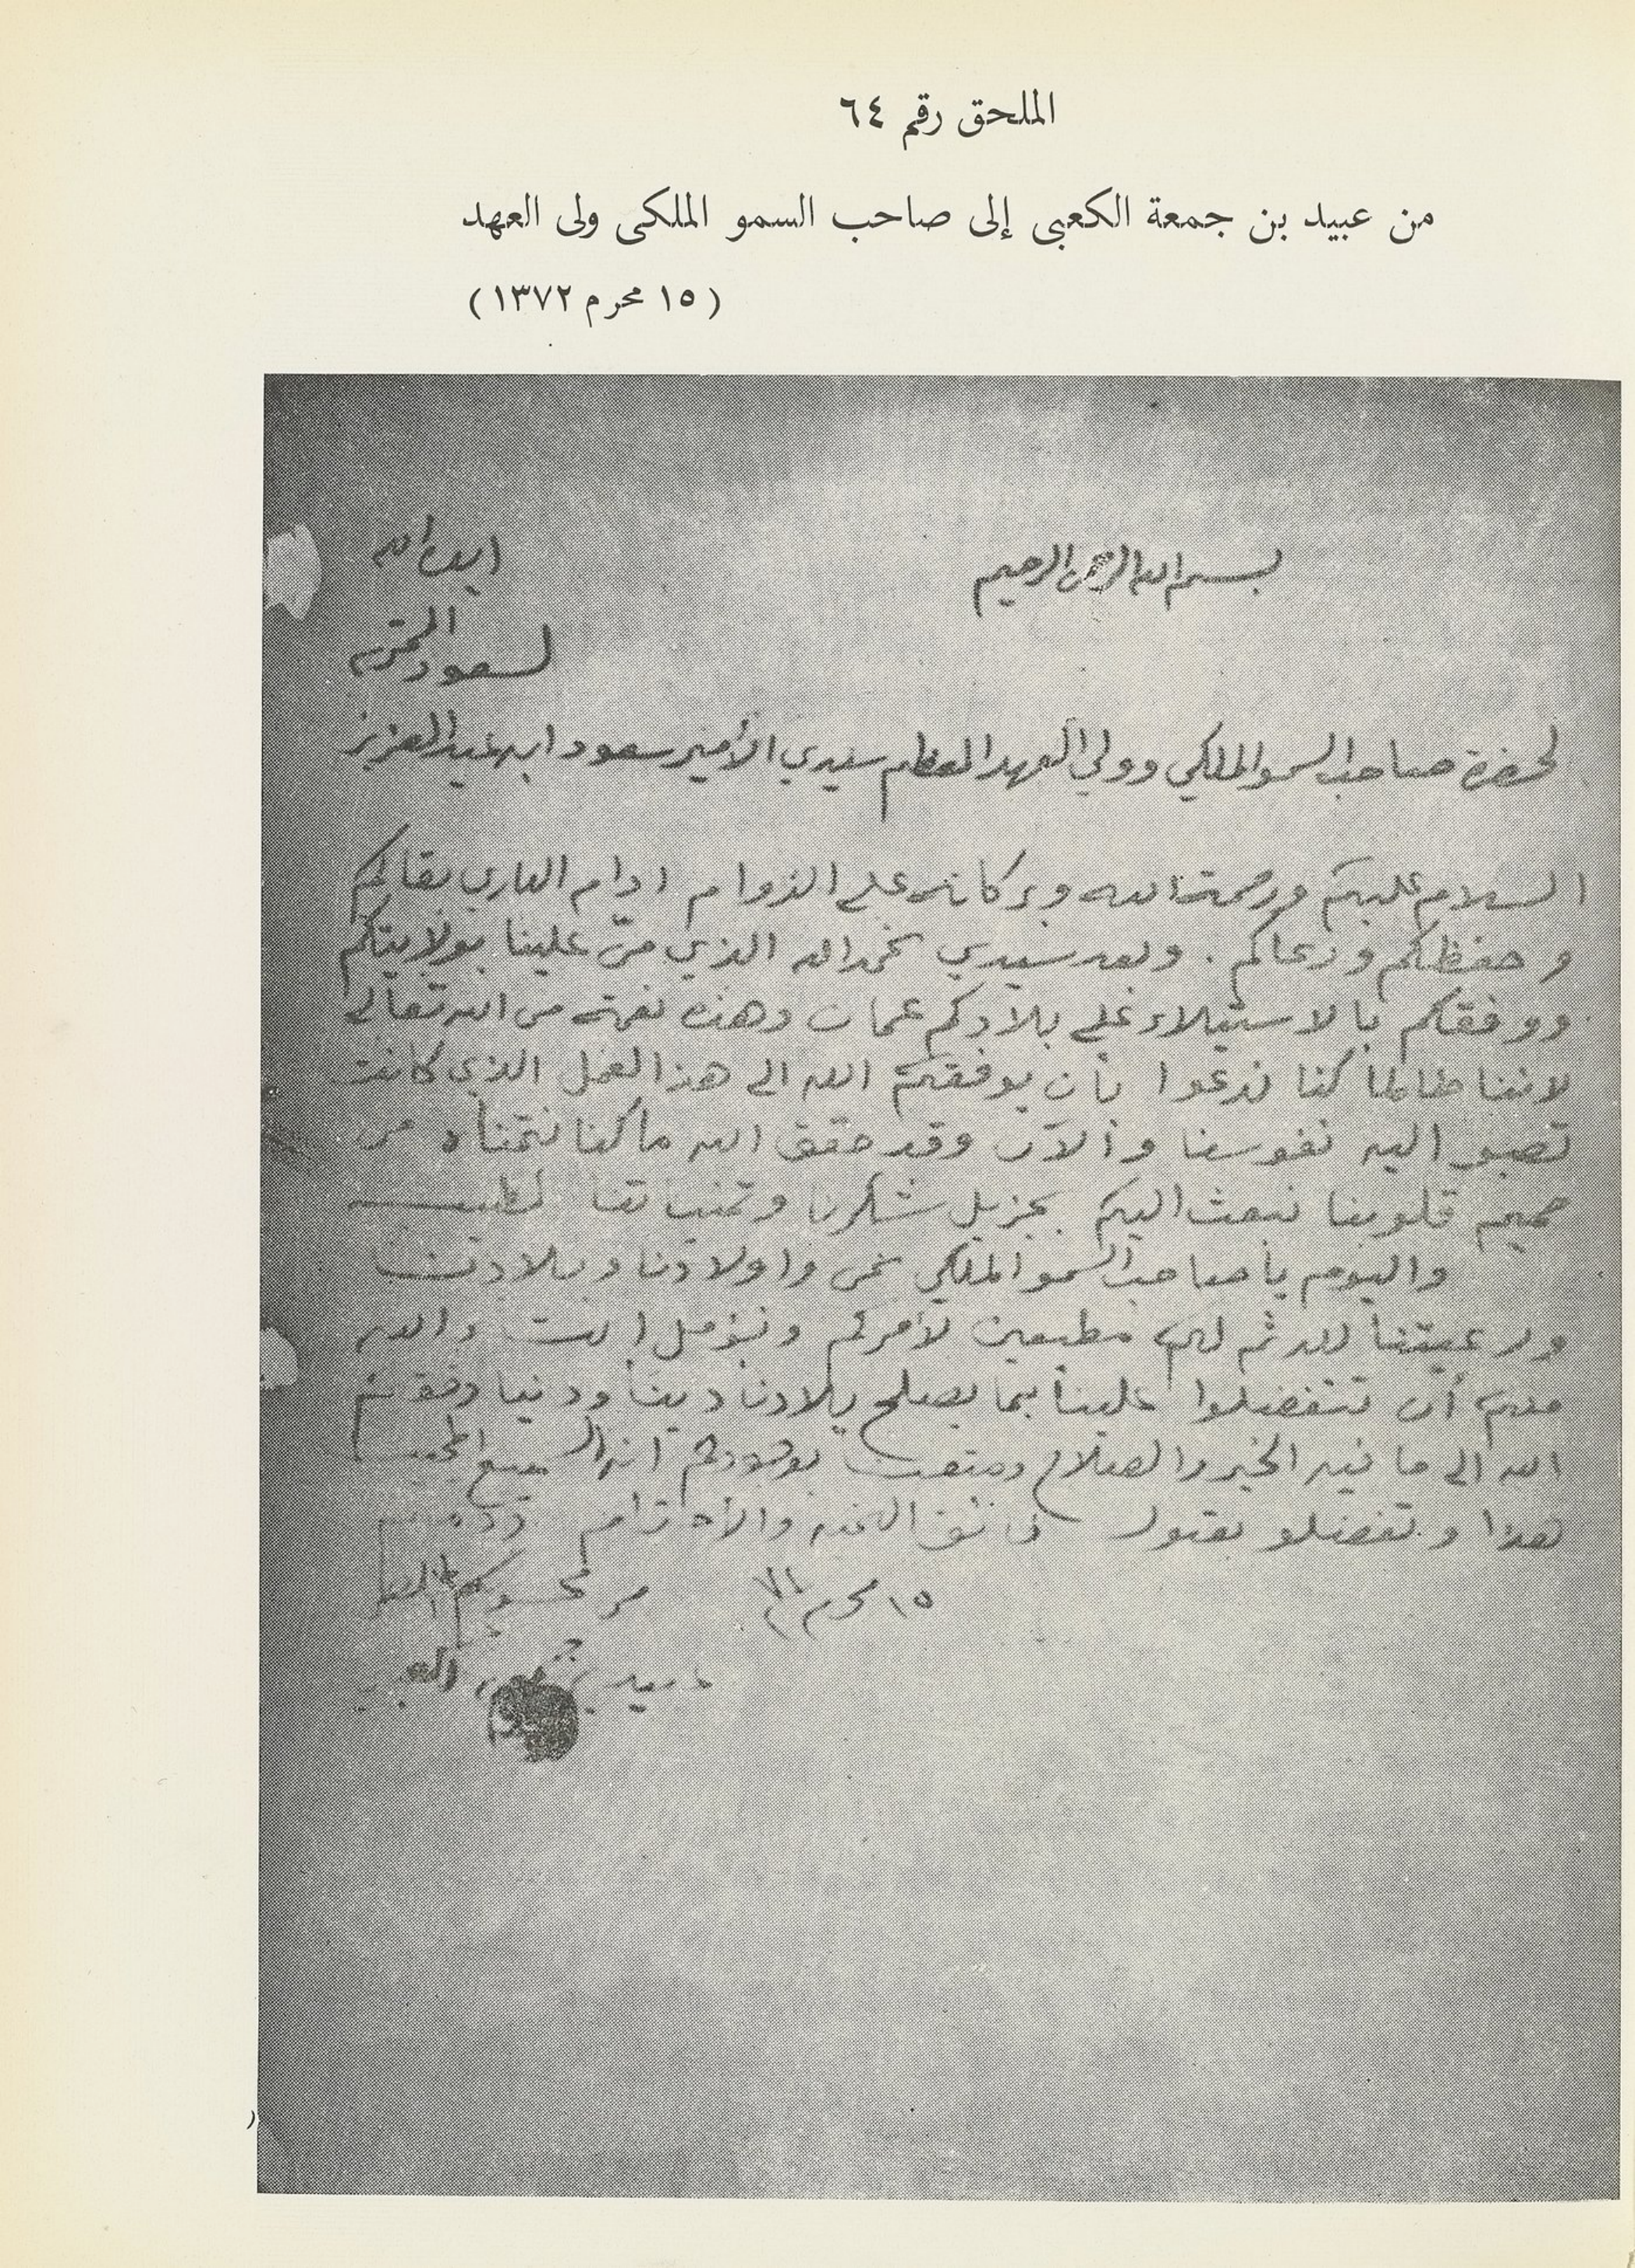 الملحق رقم ٦٤
من عبيد بن جمعة الكعبى إلى صاحب السمو الملكى ولى العهد
(١٥ محرم ١٣٧٢)
بسم الله الرحمن الرحيم
ايده الله
لسعود
لحضرة صاحب السمو الملكي وولي العهد المعظم سيدي الأمير سعود ابن عبد العزيز
السلام عليكم ورحمة الله وبركاته على الدوام ادام الباري بقائكم
وحفظكم ورعاكم . وبعد سيدي نحمد الله الذي منّ علينا بولايتكم
ووفقكم بالاستيلاء على بلادكم عمان وهذه نعمة من الله تعالى
لاننا طالما كنا ندعوا بأن يوفقكم الله الى هذا العمل الذي كانت
تصبو اليه نفوسنا والآن وقد حقق الله ما كنا نتمناه من
صميم قلوبنا نبعث اليكم بجزيل شكرنا وتمنياتنا الطيبه
واليوم يا صاحب السمو الملكي نحن واولادنا وبلادنا
ورعيتنا لله ثم لكم مطيعين لأمركم ونؤمل الله
منكم أن تتفضلوا علينا بما يصلح بلادنا دينا ودنيا وفقكم
الله الى ما فيه الخير والصلاح ومتعنا بوجودكم انه السميع المجيب
هذا وتفضلو بقبول فائق والأحترام
١٥ محرم ٧٢ من محسوبكم
عبيد بن جمعه الكعبي